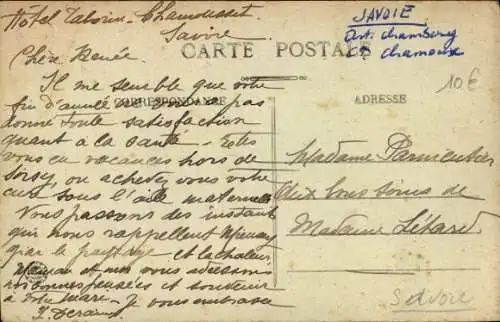 Hôtel Taborin - Chamousset
Savoie
SAVOIE
Art: chambéry
Cn chamoux
10€
CARTE POSTALE
CORRESPONDANCE
ADRESSE
Chère Renée.
Il me semble que votre
fin d'année ne vous a pas
donné toute satisfaction
quant à la santé - Etes
vous en vacances hors de
ou achevez vous votre
cure sous l'aile maternelle
Nous passons des instants
qui nous rappellent
par le paysage et la chaleur.
Maman et moi vous adressons
nos bonnes pensées et souvenir
à votre mari - Je vous embrasse
Madame Parmentier
aux bons soins de
Madame Létard
Savoie